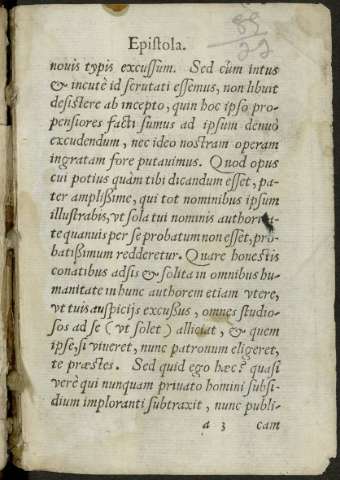 Epistola.
nouis typis excussum. Sed cùm intus
& incutè id scrutati essemus, non libuit
desistere ab incepto, quin hoc ipso pro-
pensiores facti sumus ad ipsum denuò
excudendum, nec ideo nostram operam
ingratam fore putauimus. Quod opus
cui potius quàm tibi dicandum esset, pa-
ter amplissime, qui tot nominibus ipsum
illustrabis, vt sola tui nominis authorita-
te quanuis per se probatum non esset, pro-
batissimum redderetur. Quare honestis
conatibus adsis & solita in omnibus hu-
manitate in hunc authorem etiam vtere,
vt tuis auspicijs excussus, omnes studio-
sos ad se (vt solet) alliciat, & quem
ipse, si viueret, nunc patronum eligeret,
te præstes. Sed quid ego hæc? quasi
verè qui nunquam priuato homini subsi-
dium imploranti subtraxit, nunc publi-
a 3 cam